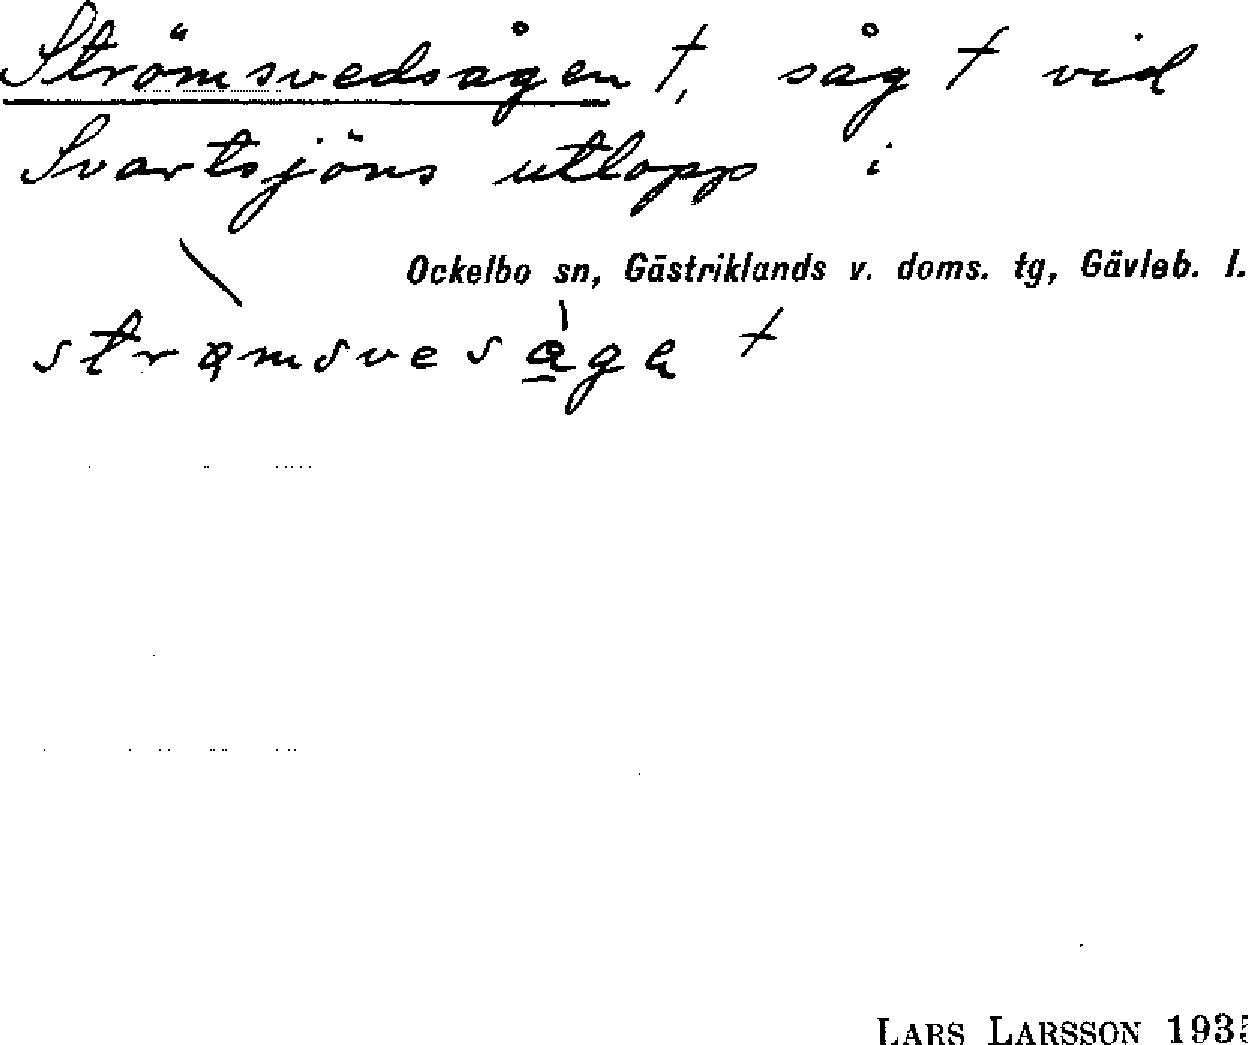 Strömsvedsågen †, såg † vid
Svartsjöns utlopp i
Ockelbo sn, Gästriklands v. doms. tg, Gävleb. l.
LARS LARSSON 1935